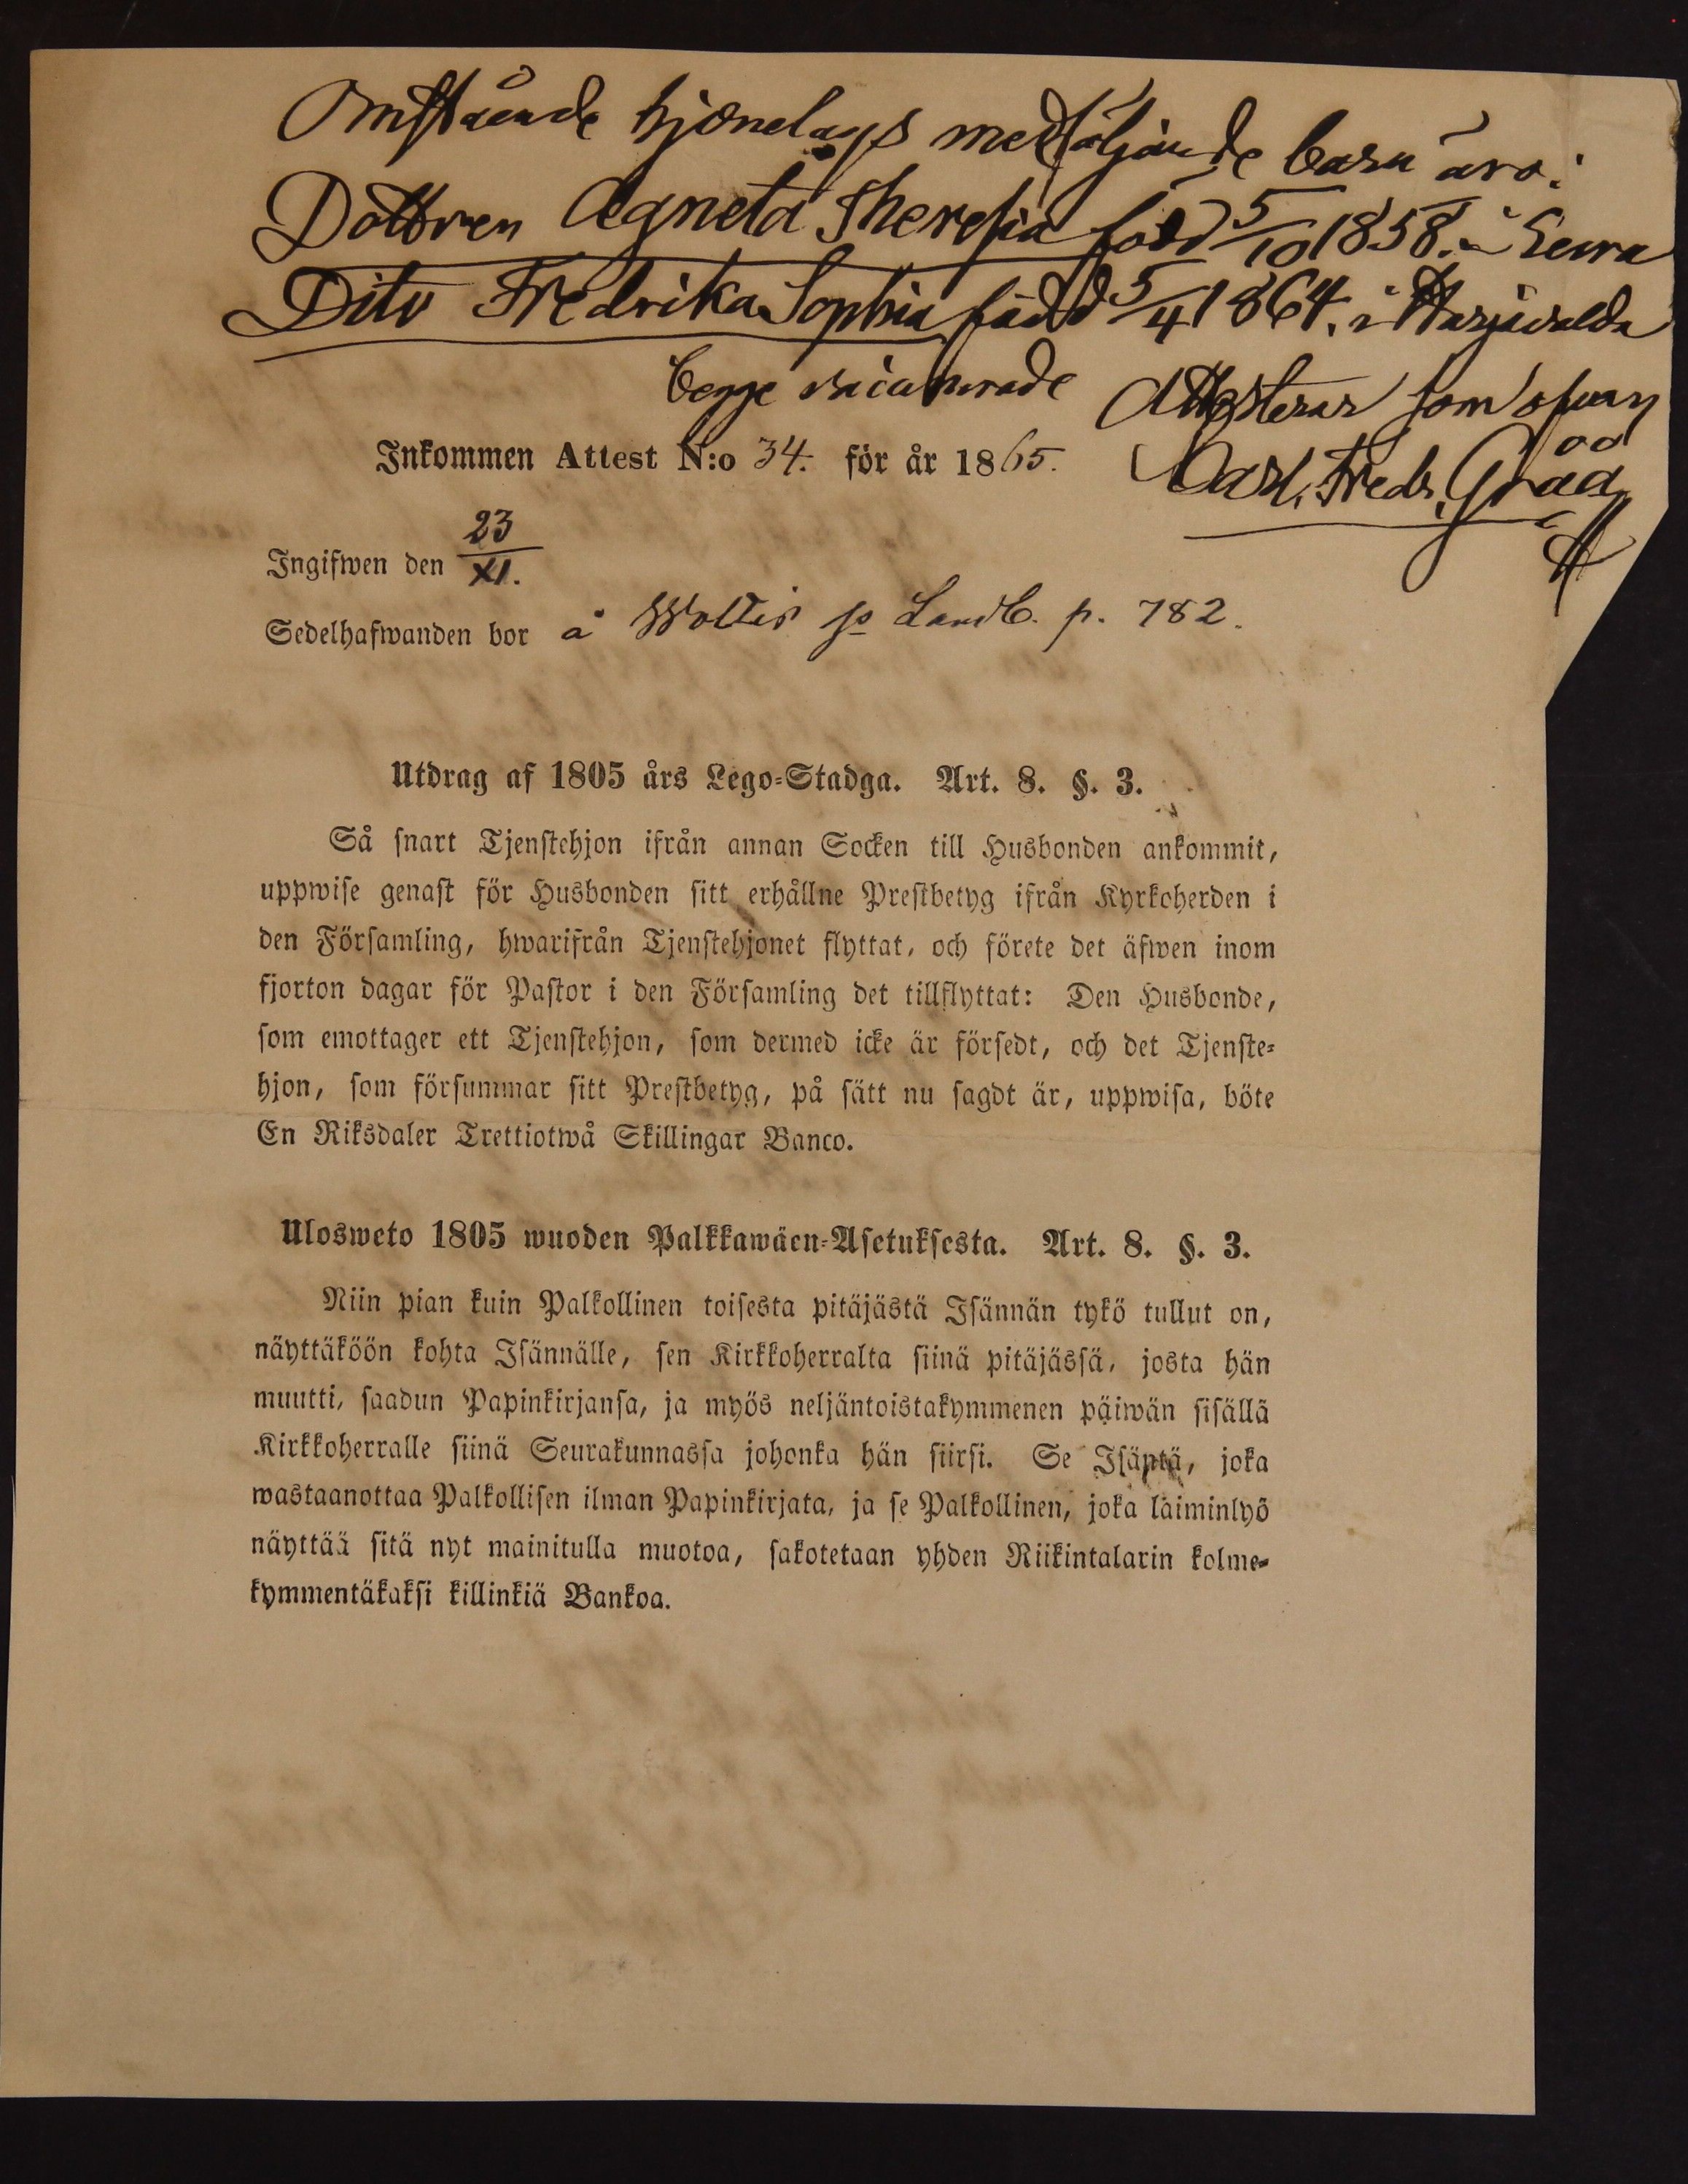 Omstående hjonelags medföljande barn äro:
Dottren Agneta Theresia född 5/10 1858. i Eura
Dito Fredrika Sophia född 5/4 1864. i Harjavalda
begge vaccinerade Attesterar som ofvan
Carl. Fredr. Gråå
Inkommen Attest N:o 34. för år 1865.
Ingifwen den 23/XI.
Sedelhafwanden bor å Woltis ss Landb. p. 782.
Utdrag af 1805 års Lego-Stadga. Art. 8. §. 3.
Så snart Tjenstehjon ifrån annan Socken till Husbonden ankommit,
uppwise genast för Husbonden sitt erhållne Prestbetyg ifrån Kyrkoherden i
den Församling, hwarifrån Tjenstehjonet flyttat, och förete det äfwen inom
fjorton dagar för Pastor i den Församling det tillflyttat: Den Husbonde,
som emottager ett Tjenstehjon, som dermed icke är försedt, och det Tjenste-
hjon, som försummar sitt Prestbetyg, på sätt nu sagdt är, uppwisa, böte
En Riksdaler Trettiotwå Skillingar Banco.
Ulosweto 1805 wuoden Palkkawäen-Asetuksesta. Art. 8. §. 3.
Niin pian kuin Palkollinen toisesta pitäjästä Isännän tykö tullut on,
näyttäköön kohta Isännälle, sen Kirkkoherralta siinä pitäjässä, josta hän
muutti, saadun Papinkirjansa, ja myös neljäntoistakymmenen päiwän sisällä
Kirkkoherralle siinä Seurakunnassa johonka hän siirsi. Se Isäntä, joka
wastaanottaa Palkollisen ilman Papinkirjata, ja se Palkollinen, joka laiminlyö
näyttää sitä nyt mainitulla muotoa, sakotetaan yhden Riikintalarin kolme-
kymmentäkaksi killinkiä Bankoa.